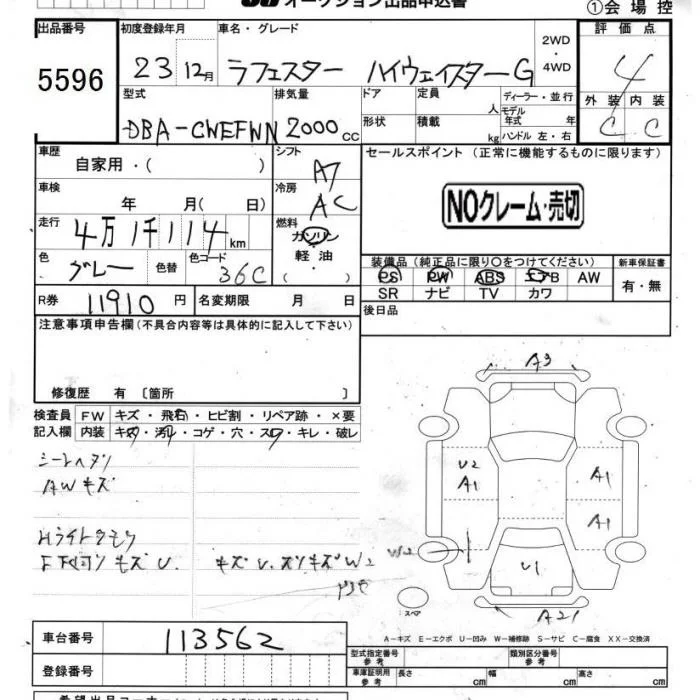 オークション出品申込書
①会場控
出品番号
5596
初度登録年月
車名・グレード
評価点
23 12月 ラフェスター ハイウェイスターG
2WD
・
4WD
4
型式
排気量
ドア
定員
人
ディーラー・並行
外装 内装
モデル
年式 年
C C
DBA-CWEFWN 2000cc
形状
積載
kg
ハンドル 左・右
車歴
自家用・( )
シフト
AT
セールスポイント (正常に機能するものに限ります)
車検
年 月( 日)
冷房
AC
NOクレーム・売切
走行
4万1千114km
燃料
ガソリン
軽油
( ・ )
色
グレー
色替
色コード
36C
装備品(純正品に限り○をつけてください)
新車保証書
PS PW ABS エアB AW
有・無
SR ナビ TV カワ
R券
11910円
名変期限 月 日
後日品
注意事項申告欄(不具合内容等は具体的に記入して下さい)
修復歴 有 〔箇所 〕
検査員
記入欄
FW キズ・飛石・ヒビ割・リペア跡・×要
内装 キズ・汚れ・コゲ・穴・スレ・キレ・破レ
シートヘタリ
AWキズ
Hライトクモリ
キズU.
A3
U2
A1
A1
A1
W2
U1
A21
スペア
A-キズ E-エクボ U-凹み W-補修跡 S-サビ C-腐食 XX-交換済
車台番号
113562
登録番号
型式指定番号
参考
類別区分番号
参考
車庫証明用
参考
長さ cm 幅 cm 高さ cm